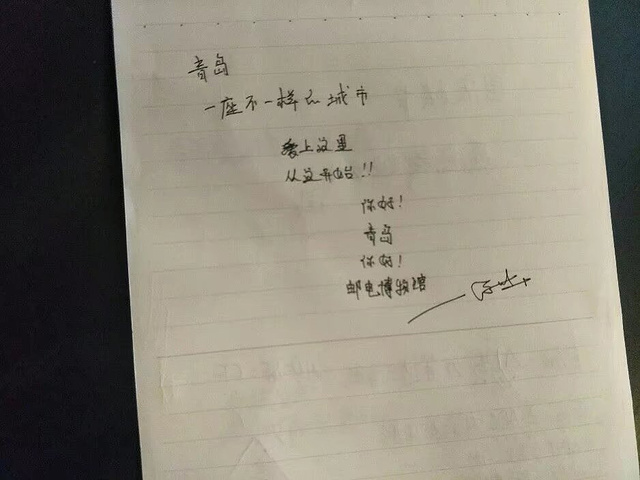 青岛
一座不一样的城市
爱上这里
从这开始!!
你好!
青岛
你好!
邮电博物馆